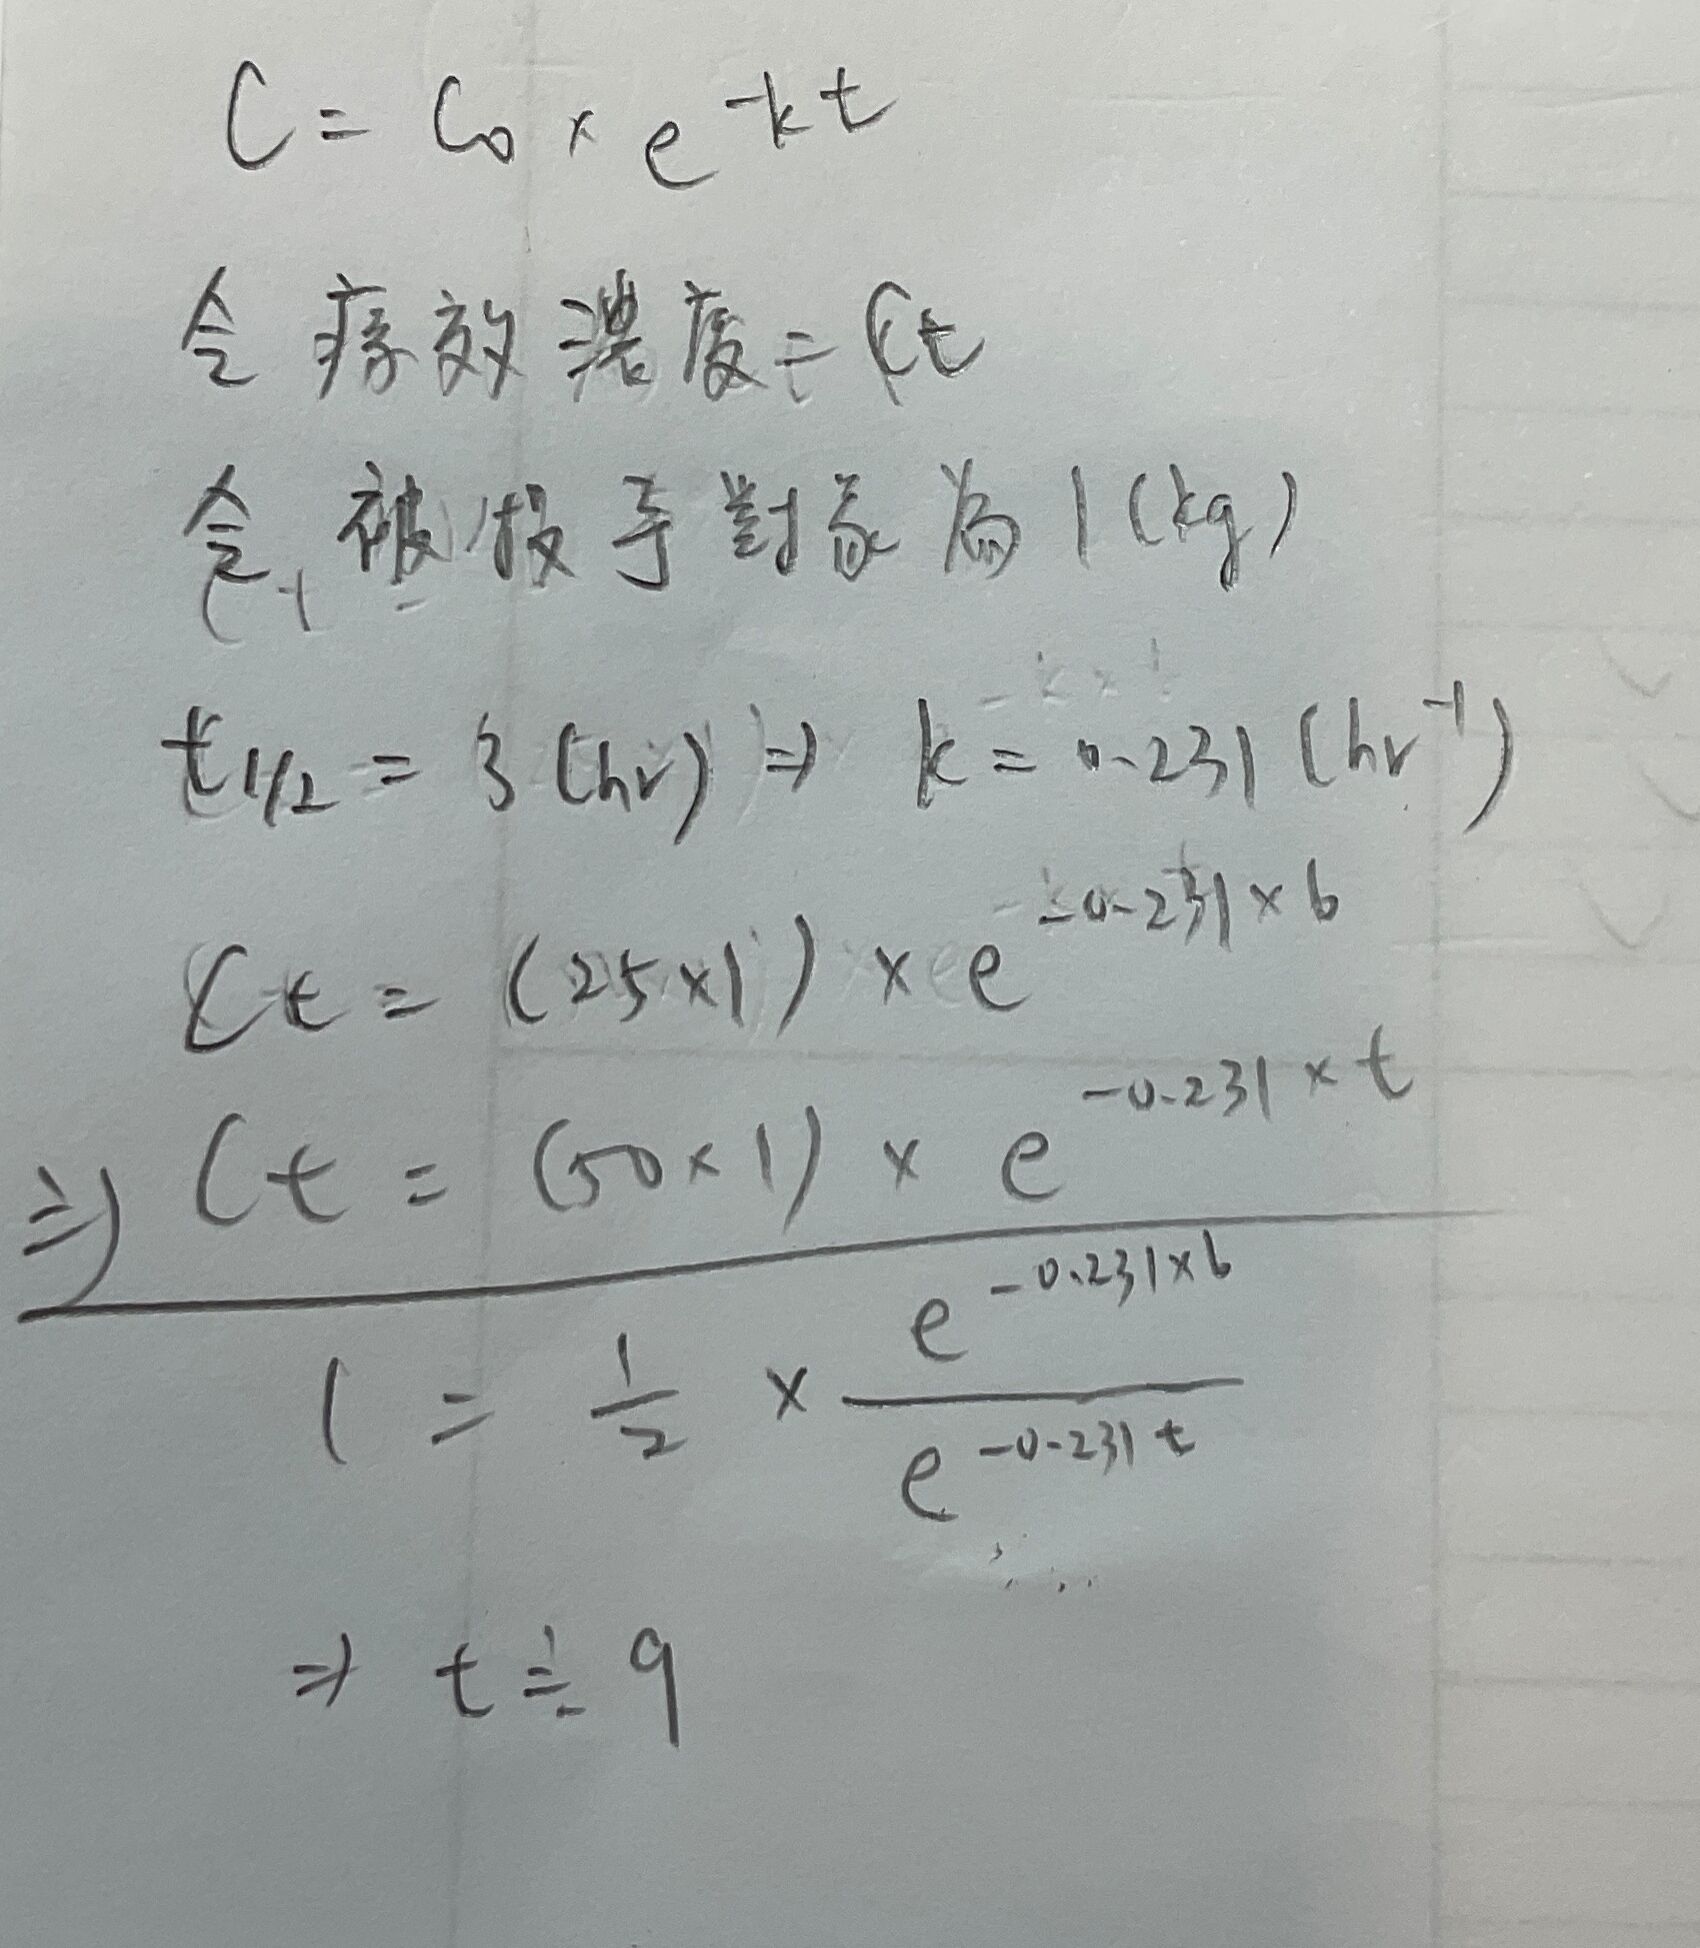 C = C₀ × e^-kt
令 療效濃度 = Ct
令 被投予對象為 1 (kg)
t1/2 = 3 (hr) ⇒ k = 0.231 (hr^-1)
Ct = (25×1) × e^-0.231×6
÷) Ct = (50×1) × e^-0.231×t
1 = 1/2 × e^-0.231×6 / e^-0.231t
⇒ t ≒ 9